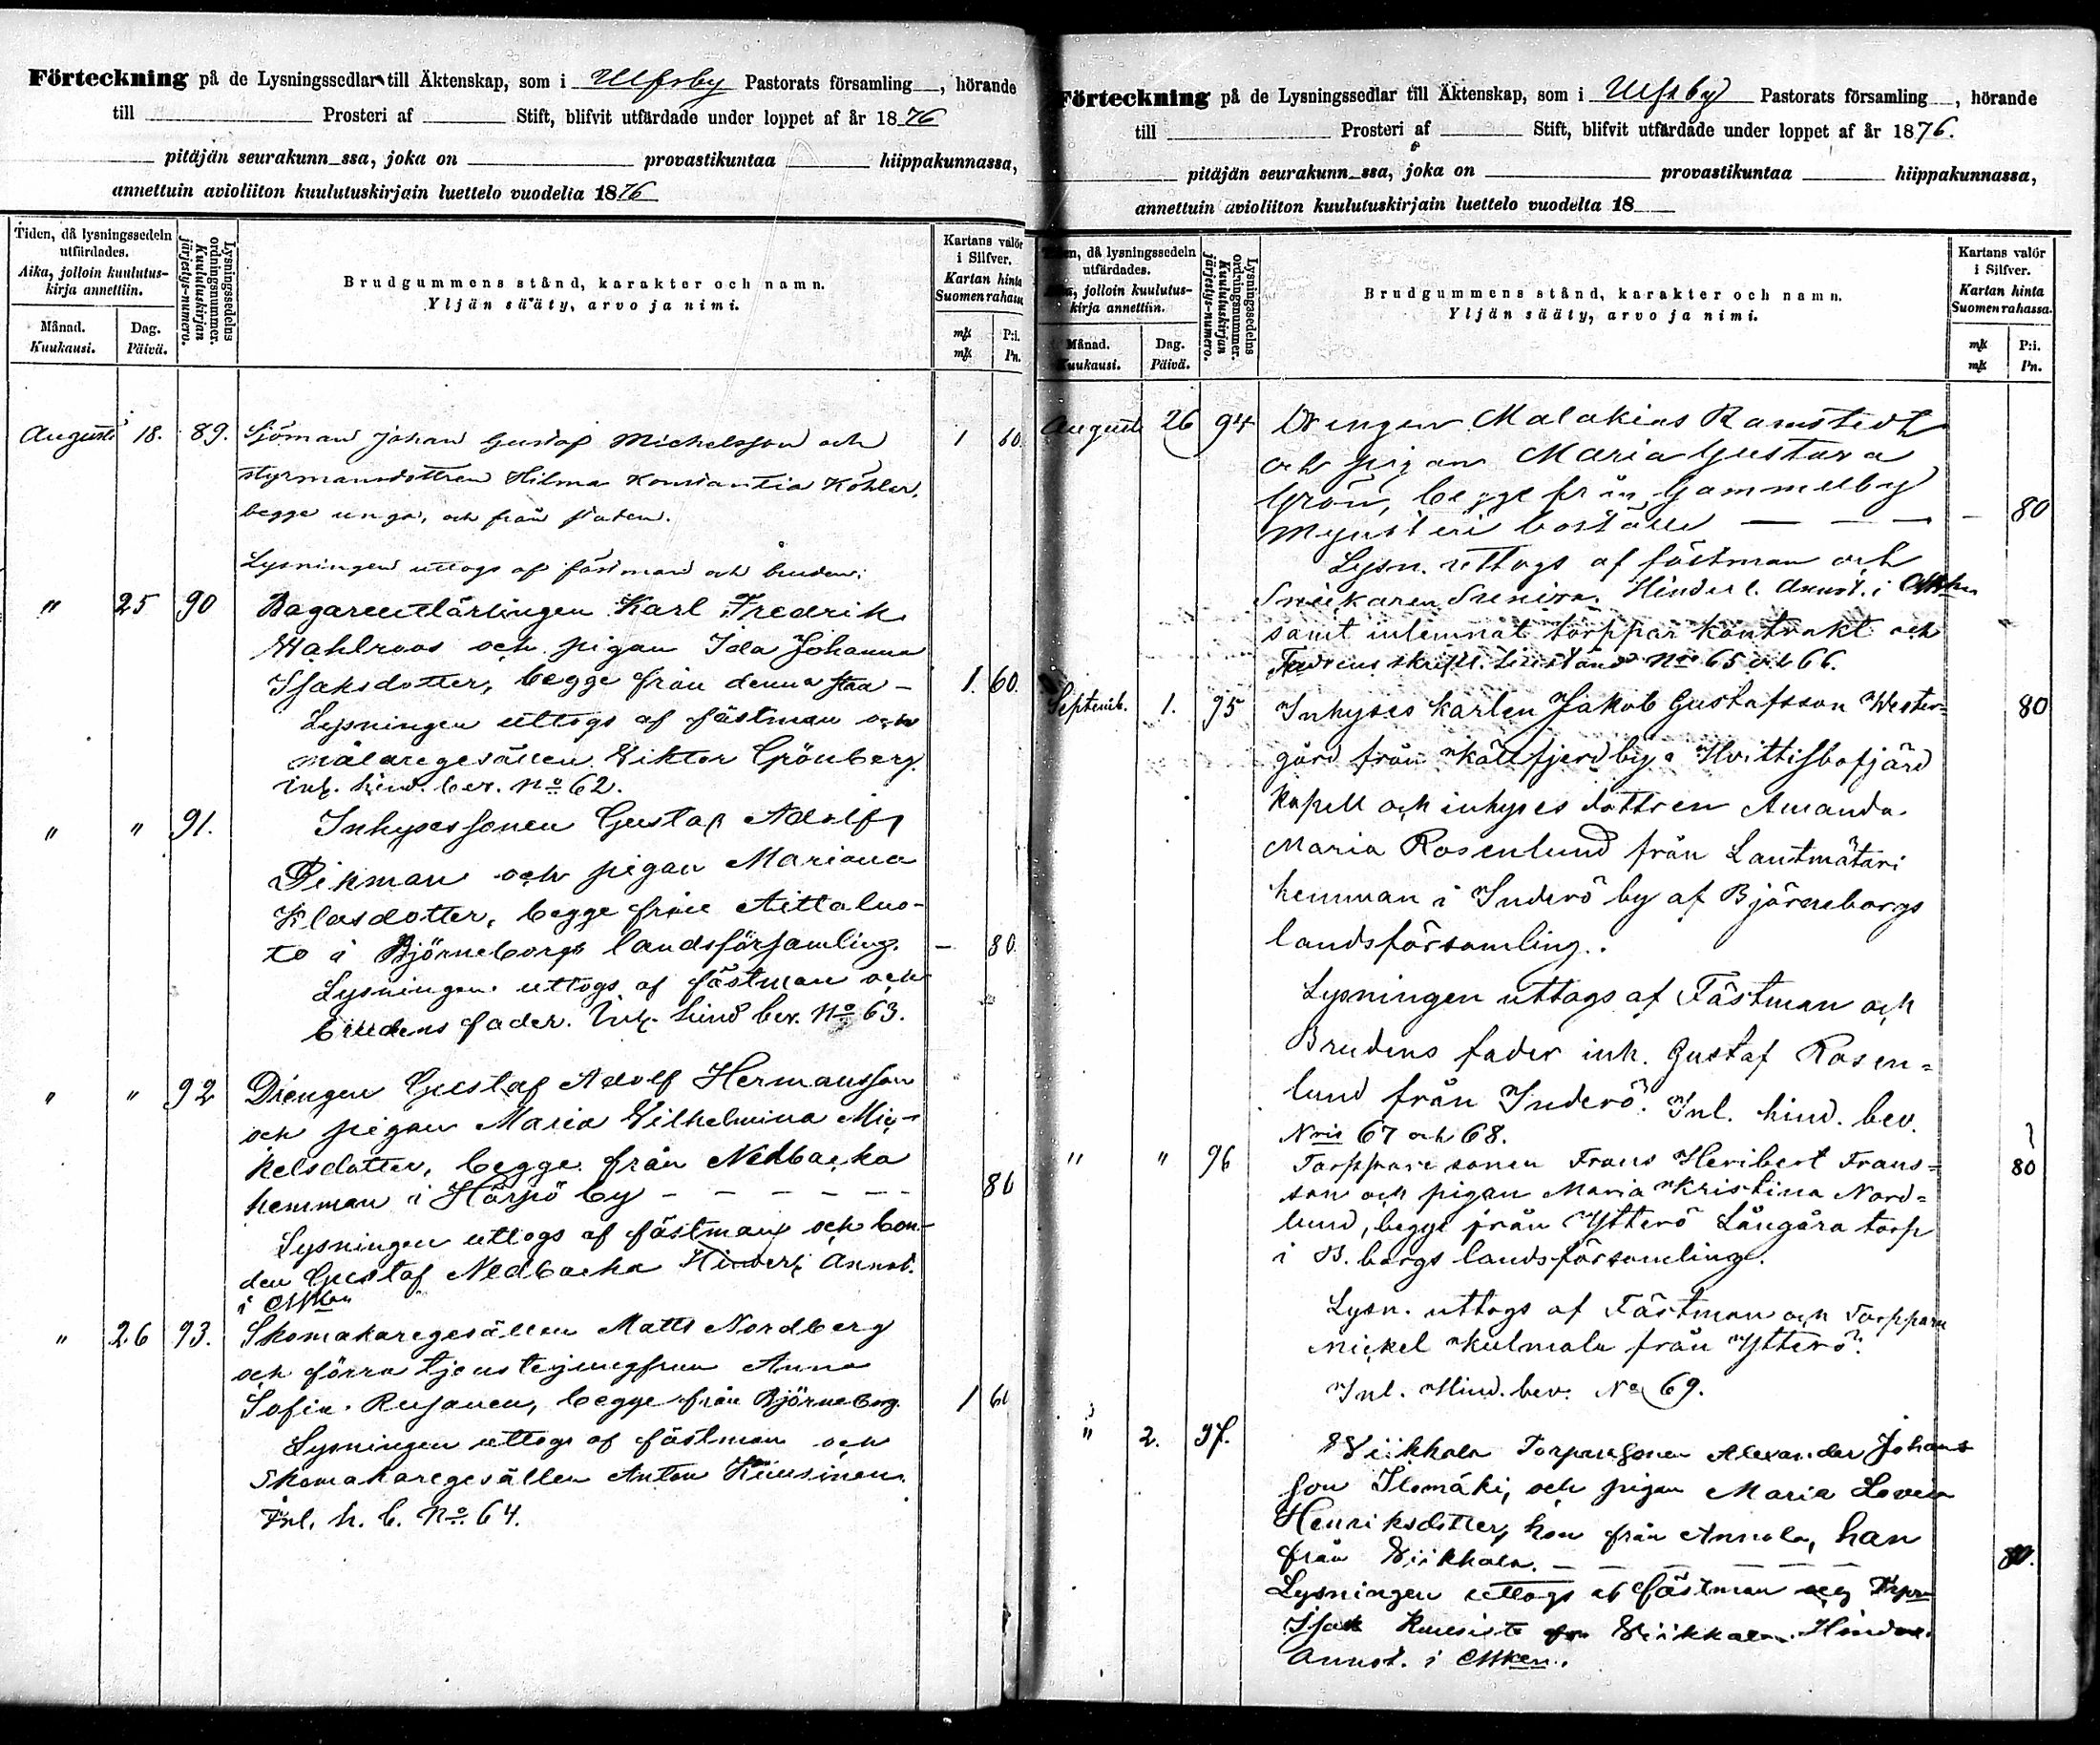 Förteckning på de Lysningssedlar till Äktenskap, som i Ulfsby Pastorats församling , hörande
till Prosteri af Stift, blifvit utfärdade under loppet af år 1876
pitäjän seurakunn ssa, joka on provastikuntaa hiippakunnassa,
annettuin avioliiton kuulutuskirjain luettelo vuodelta 1876
Tiden, då lysningssedeln utfärdades.
Aika, jolloin kuulutus-kirja annettiin.
Månad.
Kuukausi.
Dag.
Päivä.
Lysningssedelns ordningsnummer.
Kuulutuskirjan järjestys-numero.
Brudgummens stånd, karakter och namn.
Yljän sääty, arvo ja nimi.
Kartans valör i Silfver.
Kartan hinta Suomen rahassa
mk P:i.
mk Pn.
Augusti 18. 89. Sjöman Johan Gustaf Michelsson och 1 60
styrmansdottren Hilma Konstantia Köhler,
begge unga, och från staden.
Lysningen uttogs af fästman och bruden.
" 25 90 Bagarelärlingen Karl Fredrik
Wahlroos och pigan Ida Johanna
Isaksdotter, begge från denna stad - 1. 60.
Lysningen uttogs af fästman och
målaregesällen Viktor Grönberg.
inl. hind. bev. No 62.
" " 91. Inhysessonen Gustaf Adolf
Dikman och pigan Mariana
Klasdotter, begge från Aittaluo-
to i Björneborgs landsförsamling. - 80.
Lysningen uttogs af fästman och
brudens fader. Inl. hind bev. No 63.
" " 92 Drengen Gustaf Adolf Hermansson
och pigan Maria Vilhelmina Mic-
kelsdotter, begge från Nedbacka
hemman i Härpö by - - - - - - 80
Lysningen uttogs af fästman och bon-
den Gustaf Nedbacka Hinderl. Annot.
i
" 26 93. Skomakaregesällen Matts Nordberg
och förra tjenstejungfrun Anna
Sofia Rusanen, begge från Björneborg. 1 60
Lysningen uttogs af fästman och
Skomakaregesällen Anton
Inl. h. b. No. 64.
Förteckning på de Lysningssedlar till Äktenskap, som i Ulfsby Pastorats församling , hörande
till Prosteri af Stift, blifvit utfärdade under loppet af år 1876.
pitäjän seurakunn ssa, joka on provastikuntaa hiippakunnassa,
annettuin avioliiton kuulutuskirjain luettelo vuodelta 18
, då lysningssedeln utfärdades.
jolloin kuulutus-kirja annettiin.
Månad.
Kuukausi.
Dag.
Päivä.
Lysningssedelns ordningsnummer.
Kuulutuskirjan järjestys-numero.
Brudgummens stånd, karakter och namn.
Yljän sääty, arvo ja nimi.
Kartans valör i Silfver.
Kartan hinta Suomen rahassa.
mk P:i.
mk Pn.
Augusti 26 94 Drengen Malakias Ramstedt
och pigan Maria Gustava
Grön, begge från Gammelby
boställe — — — - 80
Lysn. uttogs af fästman och
Snickaren Hinderl. Annot. i
samt inlemnat torppar kontrakt och
No 65 och 66.
Septemb. 1. 95 Inhyses karlen Jakob Gustafsson Wester= 80
gård från Kállfjerd by i Hvittisbofjärd
Kapell och inhyses dottren Amanda
Maria Rosenlund från Lantmätari
hemman i Inderö by af Björneborgs
landsförsamling.
Lysningen uttogs af Fästman och
Brudens fader inh. Gustaf Rosen=
lund från Inderö. Inl. hind. bev.
Nris 67 och 68.
" " 96 Torppare sonen Frans Heribert Frans= 80
son och pigan Maria Kristina Nord=
lund, begge från Ytterö Långåra torp
i B. borgs landsförsamling.
Lysn. uttogs af Fästman och Torpparn
Mickel Kulmala från Ytterö.
Inl. Hind. bev. No 69.
" 2. 97. Viikkala Torparesonen Alexander Johans
son Ilomäki, och pigan Maria Lovisa
Henriksdotter, hon från Annala, han
från Viikkala. — — — — — 80.
Lysningen uttogs af fästman och
Isak Ruusisto från Viikkala. Hinder
Annot. i